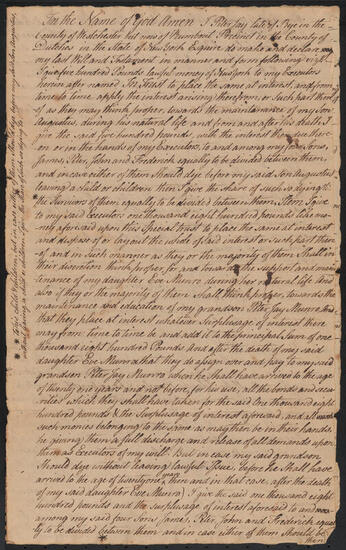 In the Name of God Amen I Peter Jay late of Rye in the
County of Westchester but now of Rumbout Precinct in the County of
Dutchess in the State of New York Esquire do make and declare my
my last Will and Testament in manner and form following viz.t
I give five hundred Pounds lawful money of New York to my Executors
herein after named In Trust to place the same at interest, and from
time to time apply the interest arising therefrom or such part there
of as they may think proper, towards the maintenance of my son
Augustus, during his natural life and from and after his death I
give the said five hundred pounds, with the interest then due there
on or in the hands of my Executors, to and among my four Sons,
James, Peter, John and Frederick equally to be divided between them,
and in case either of them Should dye before my said Son Augustus
leaving a child or children then I give the Share of such so dying to
the Survivors of them equally to be divided between them. Item I give
to my said Executors one thousand eight hundred pounds like mo-
ney aforesaid upon this Special trust to place the same at interest
and dispose of or lay out the whole of said interest or such part there
of and in such manner as they or the majority of them Shall in
their discretion think proper, for and towards the support and main
tenance of my daughter Eve Munro during her natural life And
as they or the majority of them Shall think proper, towards the
maintenance and education of my grandson Peter Jay Munro, And
that they place at interest whatever Surplusage of interest there
may from time to time be and add it to the principal Sum of one
thousand eight hundred Pounds And after the death of my said
daughter Eve Munro that they do assign over and pay to my said
grandson Peter Jay Munro when he Shall have arrived to the age
of twenty one years and not before, for his use, all the bonds and secu
rities which they shall have taken for the said One thousand eight
hundred pounds & the Surplusage of interest aforesaid, and all
such monies belonging to the same as may then be in their hands,
he giving them a full discharge and release of all demands upon
them as Executors of my will. But in case my said grandson
Should dye without leaving lawful Issue, before he Shall have
arrived to the age of twenty one years then and in that case, after the death
of my said daughter Eve Munro I give the said one thousand eight
hundred pounds and the Surplusage of interest aforesaid to and
among my said four Sons James, Peter, John and Frederick equal
ly to be divided between them and in case either of them Should be
then